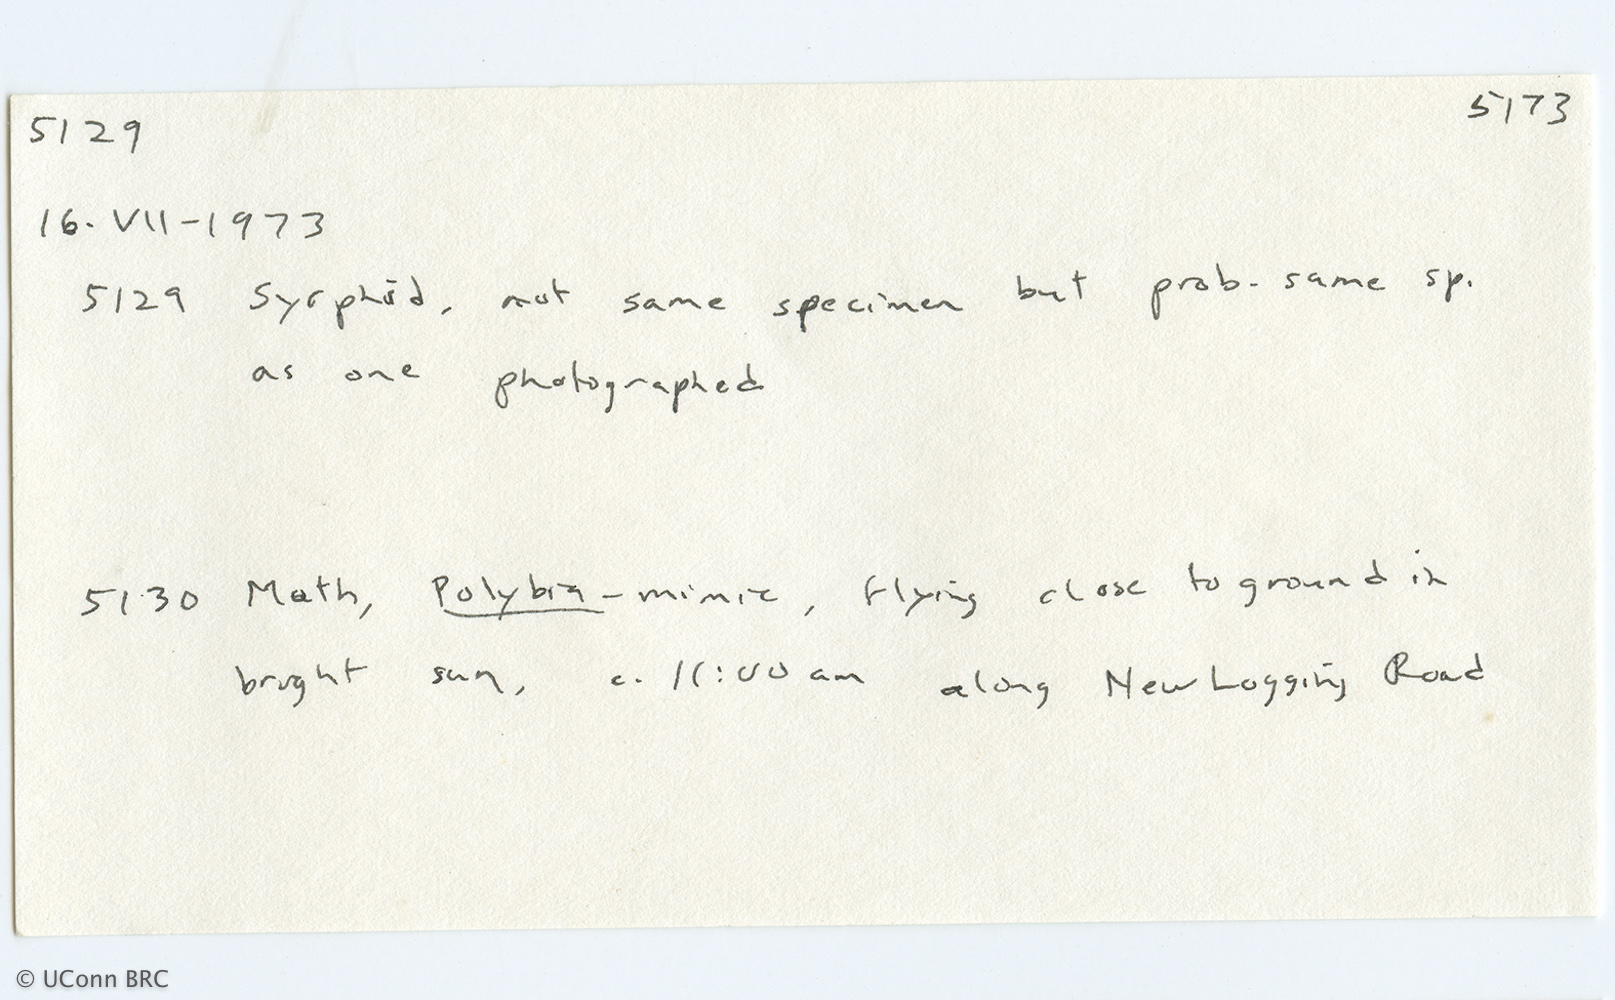 5129 5173
16-VII-1973
5129 Syrphid, not same specimen but prob. same sp.
as one photographed
5130 Moth, Polybia-mimic, flying close to ground in
bright sun, c. 11:00 am along New Logging Road
© UConn BRC